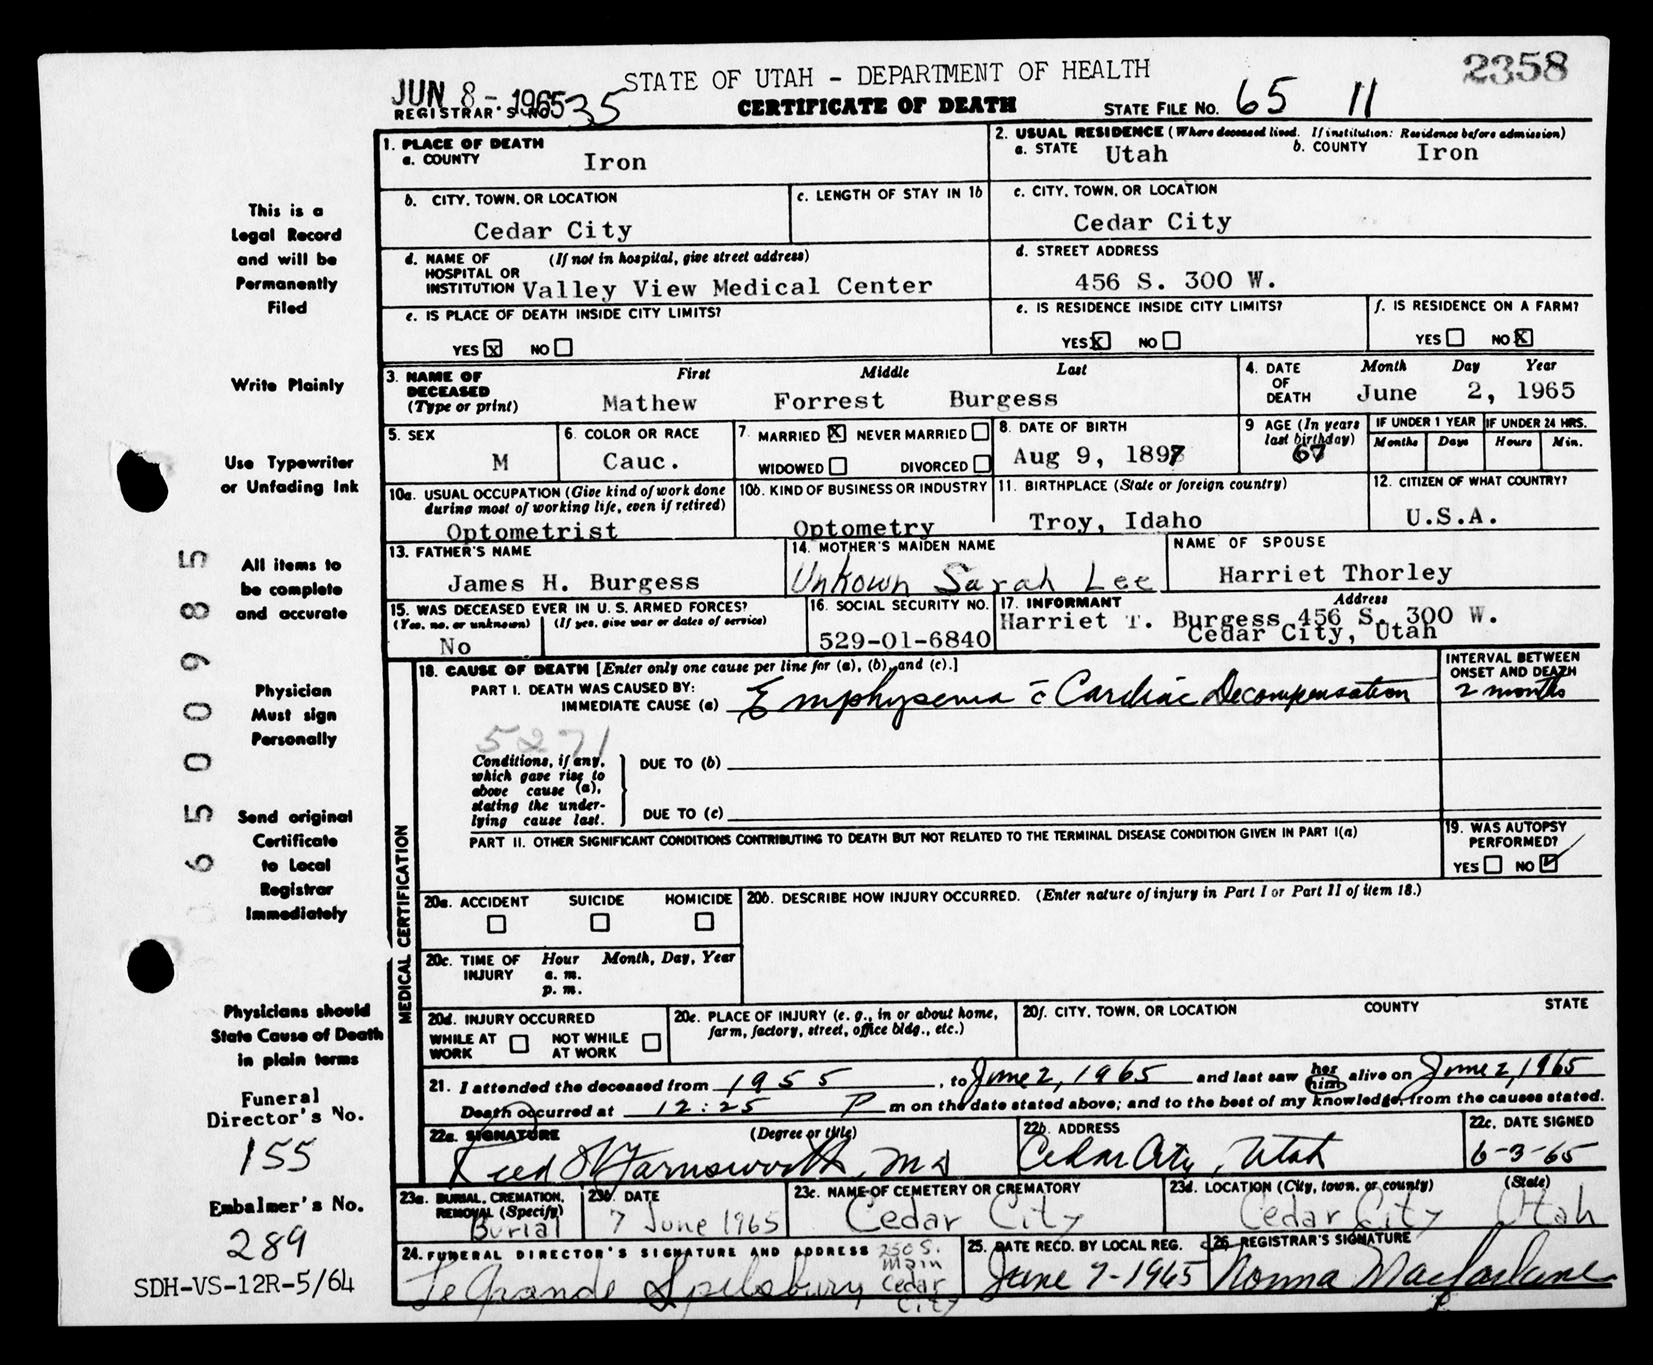 2358
STATE OF UTAH - DEPARTMENT OF HEALTH
JUN 8 - 1965
REGISTRAR'S NO. 35
CERTIFICATE OF DEATH
STATE FILE NO. 65 11
1. PLACE OF DEATH
a. COUNTY Iron
2. USUAL RESIDENCE (Where deceased lived. If institution: Residence before admission)
a. STATE Utah b. COUNTY Iron
b. CITY, TOWN, OR LOCATION
Cedar City
c. LENGTH OF STAY IN 1b
c. CITY, TOWN, OR LOCATION
Cedar City
d. NAME OF (If not in hospital, give street address)
HOSPITAL OR
INSTITUTION Valley View Medical Center
d. STREET ADDRESS
456 S. 300 W.
e. IS PLACE OF DEATH INSIDE CITY LIMITS?
YES X NO
e. IS RESIDENCE INSIDE CITY LIMITS?
YES X NO
f. IS RESIDENCE ON A FARM?
YES NO X
3. NAME OF DECEASED (Type or print)
First Middle Last
Mathew Forrest Burgess
4. DATE OF DEATH
Month Day Year
June 2, 1965
5. SEX
M
6. COLOR OR RACE
Cauc.
7. MARRIED X NEVER MARRIED
WIDOWED DIVORCED
8. DATE OF BIRTH
Aug 9, 1897
9 AGE (In years last birthday)
67
IF UNDER 1 YEAR
Months Days
IF UNDER 24 HRS.
Hours Min.
10a. USUAL OCCUPATION (Give kind of work done
during most of working life, even if retired)
Optometrist
10b. KIND OF BUSINESS OR INDUSTRY
Optometry
11. BIRTHPLACE (State or foreign country)
Troy, Idaho
12. CITIZEN OF WHAT COUNTRY?
U.S.A.
13. FATHER'S NAME
James H. Burgess
14. MOTHER'S MAIDEN NAME
Unkown Sarah Lee
NAME OF SPOUSE
Harriet Thorley
15. WAS DECEASED EVER IN U.S. ARMED FORCES?
(Yes, no, or unknown) (If yes, give war or dates of service)
No
16. SOCIAL SECURITY NO.
529-01-6840
17. INFORMANT Address
Harriet T. Burgess 456 S. 300 W.
Cedar City, Utah
MEDICAL CERTIFICATION
18. CAUSE OF DEATH [Enter only one cause per line for (a), (b), and (c).]
PART I. DEATH WAS CAUSED BY:
IMMEDIATE CAUSE (a) Emphysema c̄ Cardiac Decompensation
INTERVAL BETWEEN
ONSET AND DEATH
2 months
5271
Conditions, if any,
which gave rise to
above cause (a),
stating the under-
lying cause last.
DUE TO (b)
DUE TO (c)
PART II. OTHER SIGNIFICANT CONDITIONS CONTRIBUTING TO DEATH BUT NOT RELATED TO THE TERMINAL DISEASE CONDITION GIVEN IN PART I(a)
19. WAS AUTOPSY
PERFORMED?
YES NO ✓
20a. ACCIDENT SUICIDE HOMICIDE
20b. DESCRIBE HOW INJURY OCCURRED. (Enter nature of injury in Part I or Part II of item 18.)
20c. TIME OF INJURY
Hour Month, Day, Year
a. m.
p. m.
20d. INJURY OCCURRED
WHILE AT WORK NOT WHILE AT WORK
20e. PLACE OF INJURY (e. g., in or about home,
farm, factory, street, office bldg., etc.)
20f. CITY, TOWN, OR LOCATION COUNTY STATE
21. I attended the deceased from 1955, to June 2, 1965 and last saw her him alive on June 2, 1965
Death occurred at 12:25 P m on the date stated above; and to the best of my knowledge, from the causes stated.
22a. SIGNATURE (Degree or title)
Reed W Farnsworth, MD
22b. ADDRESS
Cedar City, Utah
22c. DATE SIGNED
6-3-65
23a. BURIAL, CREMATION,
REMOVAL (Specify)
Burial
23b. DATE
7 June 1965
23c. NAME OF CEMETERY OR CREMATORY
Cedar City
23d. LOCATION (City, town, or county) (State)
Cedar City Utah
24. FUNERAL DIRECTOR'S SIGNATURE AND ADDRESS
LeGrande Spilsbury
250 S.
Main
Cedar
City
25. DATE RECD. BY LOCAL REG.
June 7-1965
26. REGISTRAR'S SIGNATURE
Norma Macfarlane
This is a
Legal Record
and will be
Permanently
Filed
Write Plainly
Use Typewriter
or Unfading Ink
All items to
be complete
and accurate
Physician
Must sign
Personally
Send original
Certificate
to Local
Registrar
Immediately
Physicians should
State Cause of Death
in plain terms
Funeral
Director's No.
155
Embalmer's No.
289
SDH-VS-12R-5/64
06500985